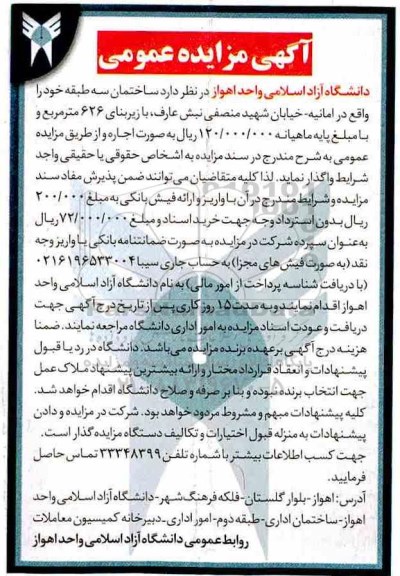 آگهی مزایده عمومی
دانشگاه آزاد اسلامی واحد اهواز در نظر دارد ساختمان سه طبقه خود را
واقع در امانیه-خیابان شهید منصفی نبش عارف، با زیربنای ۶۲۶ مترمربع و
با مبلغ پایه ماهیانه ۱۲۰/۰۰۰/۰۰۰ ریال به صورت اجاره و از طریق مزایده
عمومی به شرح مندرج در سند مزایده به اشخاص حقوقی یا حقیقی واجد
شرایط واگذار نماید. لذا کلیه متقاضیان می‌توانند ضمن پذیرش مفاد سند
مزایده و شرایط مندرج در آن با واریز و ارائه فیش بانکی به مبلغ ۲۰۰/۰۰۰
ریال بدون استرداد وجه جهت خرید اسناد و مبلغ ۷۲/۰۰۰/۰۰۰ ریال
به عنوان سپرده شرکت در مزایده به صورت ضمانتنامه بانکی یا واریز وجه
نقد (به صورت فیش های مجزا) به حساب جاری سیبا ۰۲۱۶۱۹۶۵۳۳۰۰۴
(با دریافت شناسه پرداخت از امور مالی) به نام دانشگاه آزاد اسلامی واحد
اهواز اقدام نمایند و به مدت ۱۵ روز کاری پس از تاریخ درج آگهی جهت
دریافت و عودت اسناد مزایده به امور اداری دانشگاه مراجعه نمایند. ضمنا
هزینه درج آگهی بر عهده برنده مزایده می‌باشد. دانشگاه در رد یا قبول
پیشنهادات و انعقاد قرارداد مختار و ارائه بیشترین پیشنهاد ملاک عمل
جهت انتخاب برنده نبوده و بنا بر صرفه و صلاح دانشگاه اقدام خواهد شد.
کلیه پیشنهادات مبهم و مشروط مردود خواهد بود. شرکت در مزایده و دادن
پیشنهادات به منزله قبول اختیارات و تکالیف دستگاه مزایده گذار است.
جهت کسب اطلاعات بیشتر با شماره تلفن ۳۳۳۴۸۳۹۹ تماس حاصل
فرمایید.
آدرس: اهواز-بلوار گلستان-فلکه فرهنگ شهر-دانشگاه آزاد اسلامی واحد
اهواز-ساختمان اداری-طبقه دوم-امور اداری-دبیرخانه کمیسیون معاملات
روابط عمومی دانشگاه آزاد اسلامی واحد اهواز